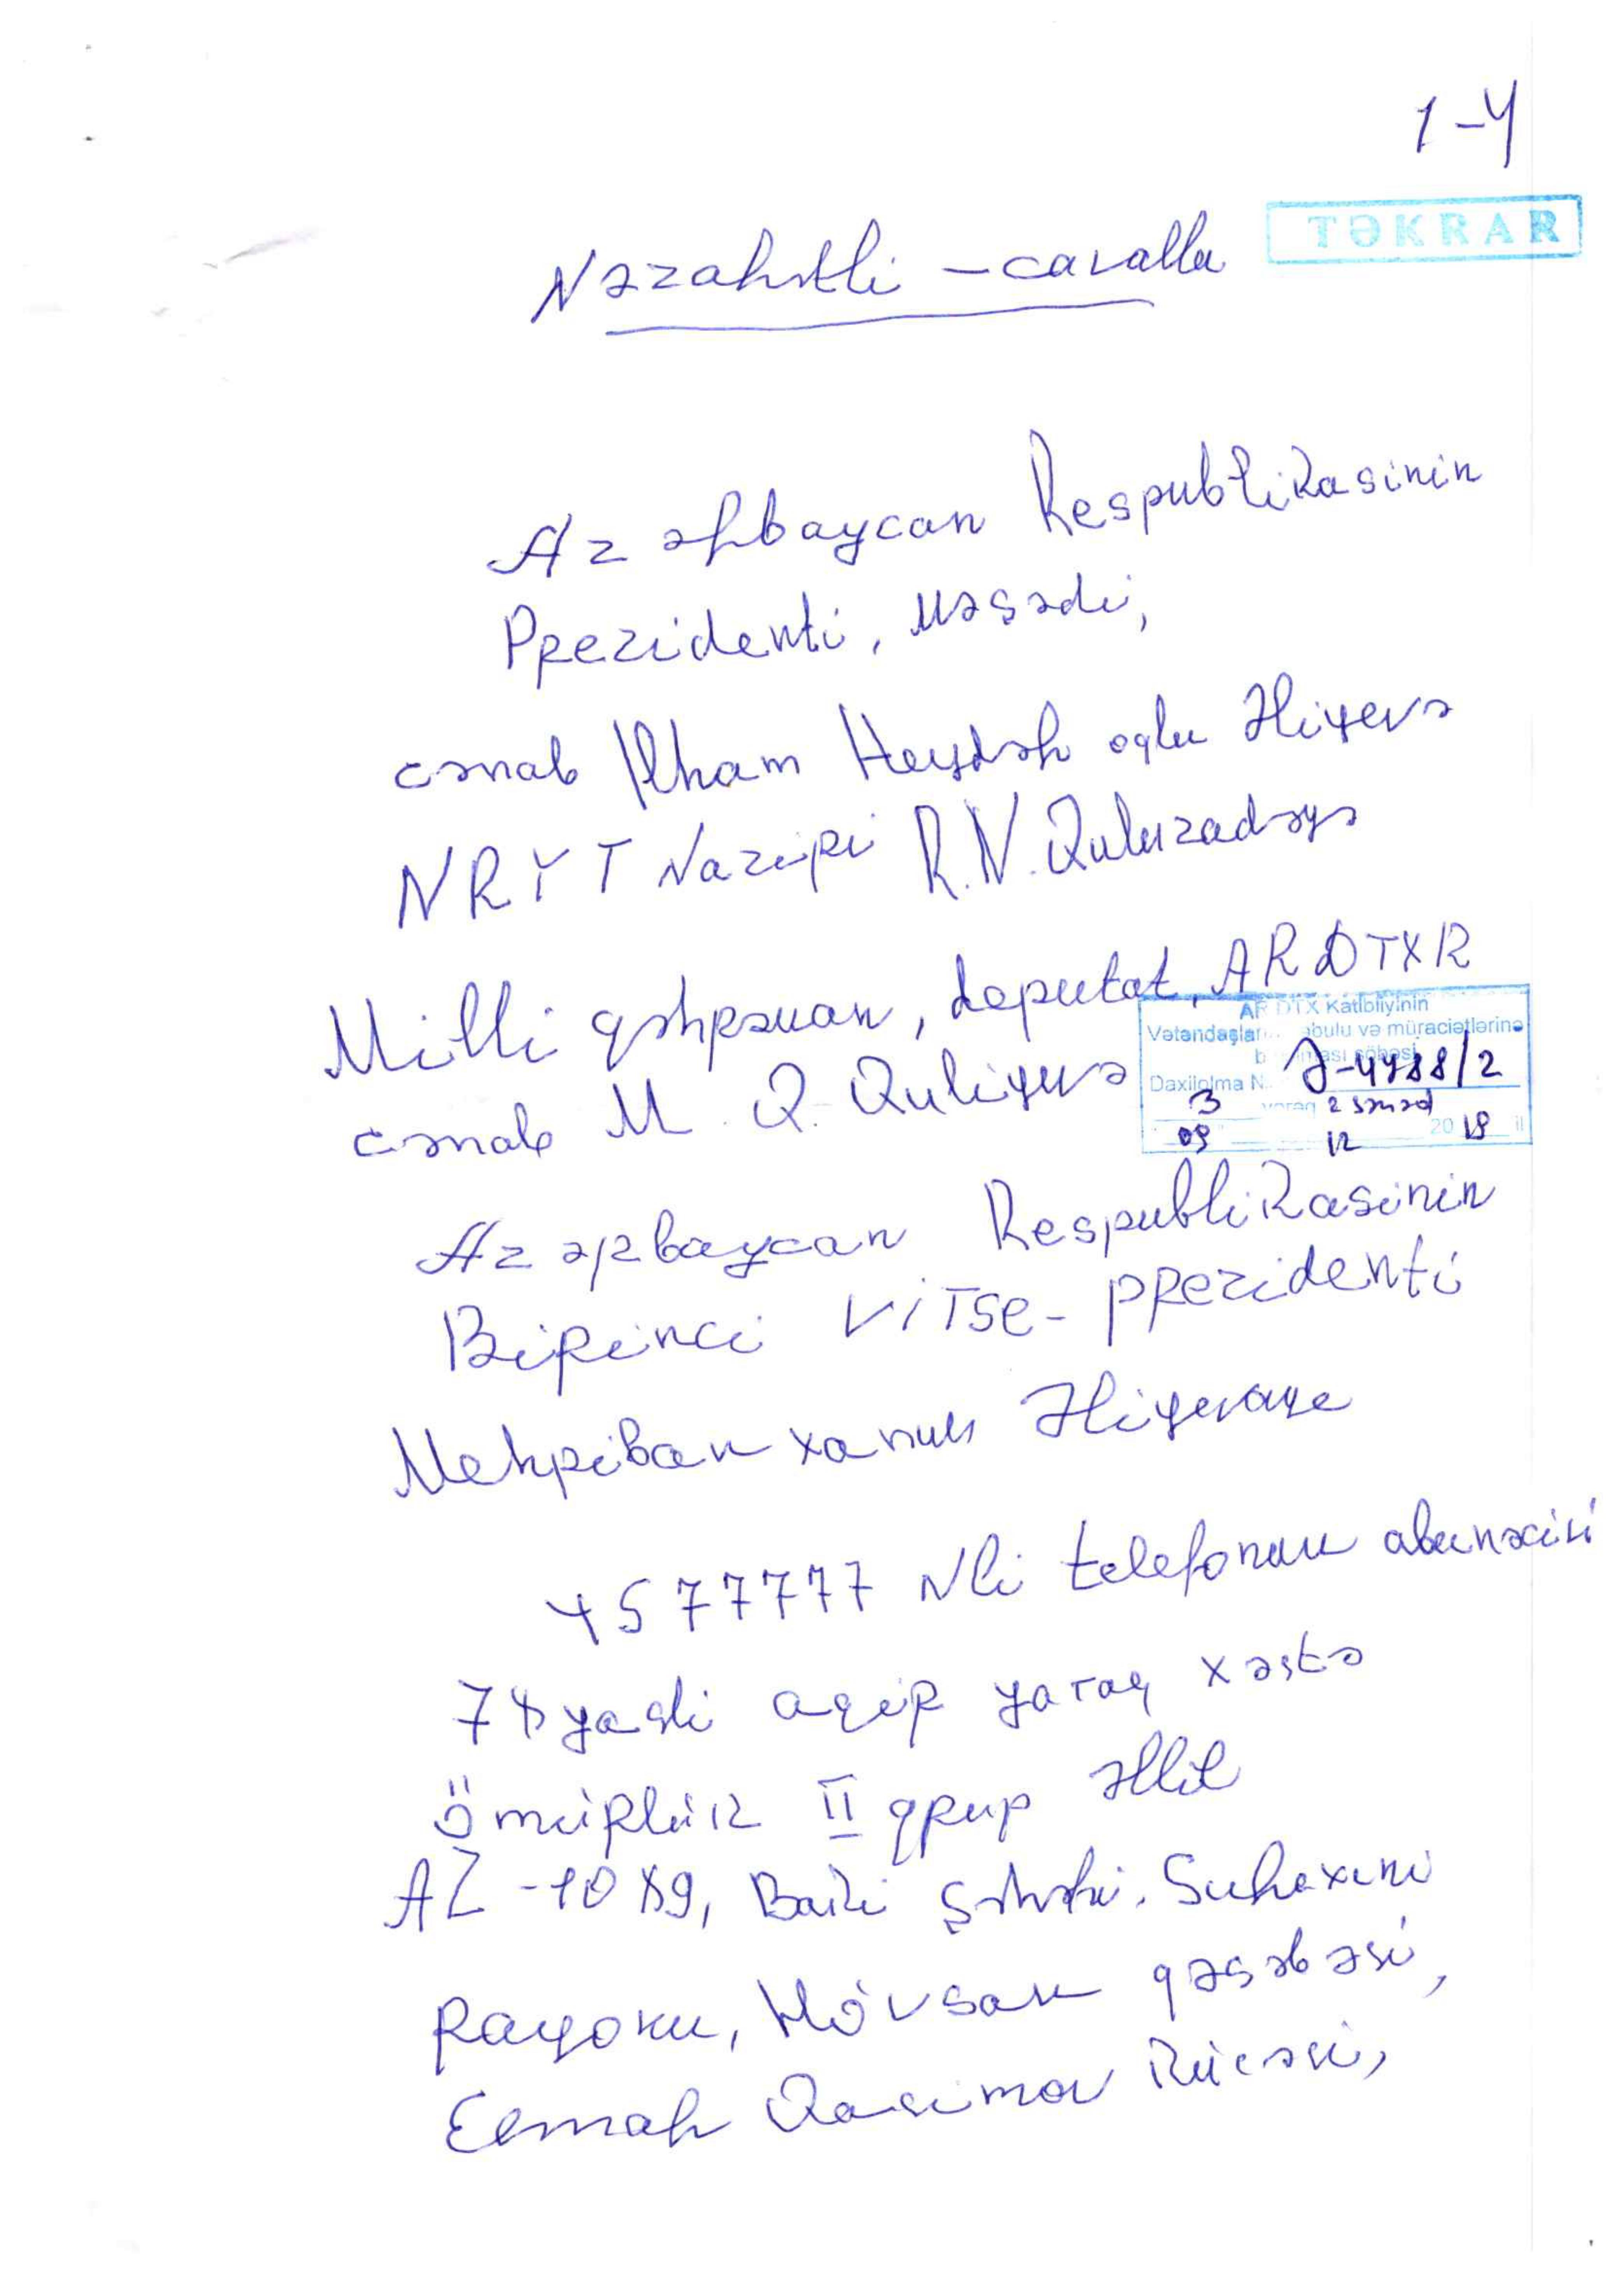 1-4
TƏKRAR
Nəzahətli - cavalla
Azərbaycan Respublikasinin
Prezidenti, Məşədi,
cənab Ilham Heydər oglu Əliyevə
NRYT Naziri R.N. Quluzadəyə
Milli qəhrəman, deputat, ARDTXR
cənab M. Q. Quliyevə
AR DTX Katibliyinin
Vətəndaşların qəbulu və müraciətlərinə
baxılması şöbəsi
Daxilolma N. Ə-4788/2
3 vərəq 2 sənəd
09 12 2019 il
Azərbaycan Respublikasinin
Birinci Vitse-prezidenti
Mehriban xanum Əliyevaya
4577777 Nli telefonun abunəcisi
yasli agir xəstə
ömürlük II qrup əllil
AZ-1089, Baki şəhəri, Suraxani
Rayonu, Hövsan qəsəbəsi,
Elmar Qasimov Kücəsi,